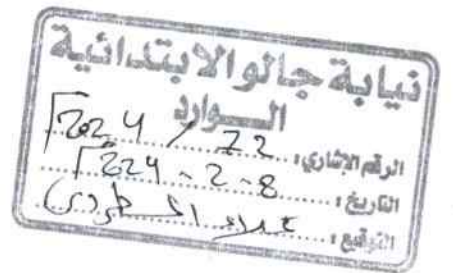 نيابة جالو الابتدائية
الـــوارد
الرقم الإشاري: 22 / 2024
التاريخ: 8-2-2024
التوقيع: علاء